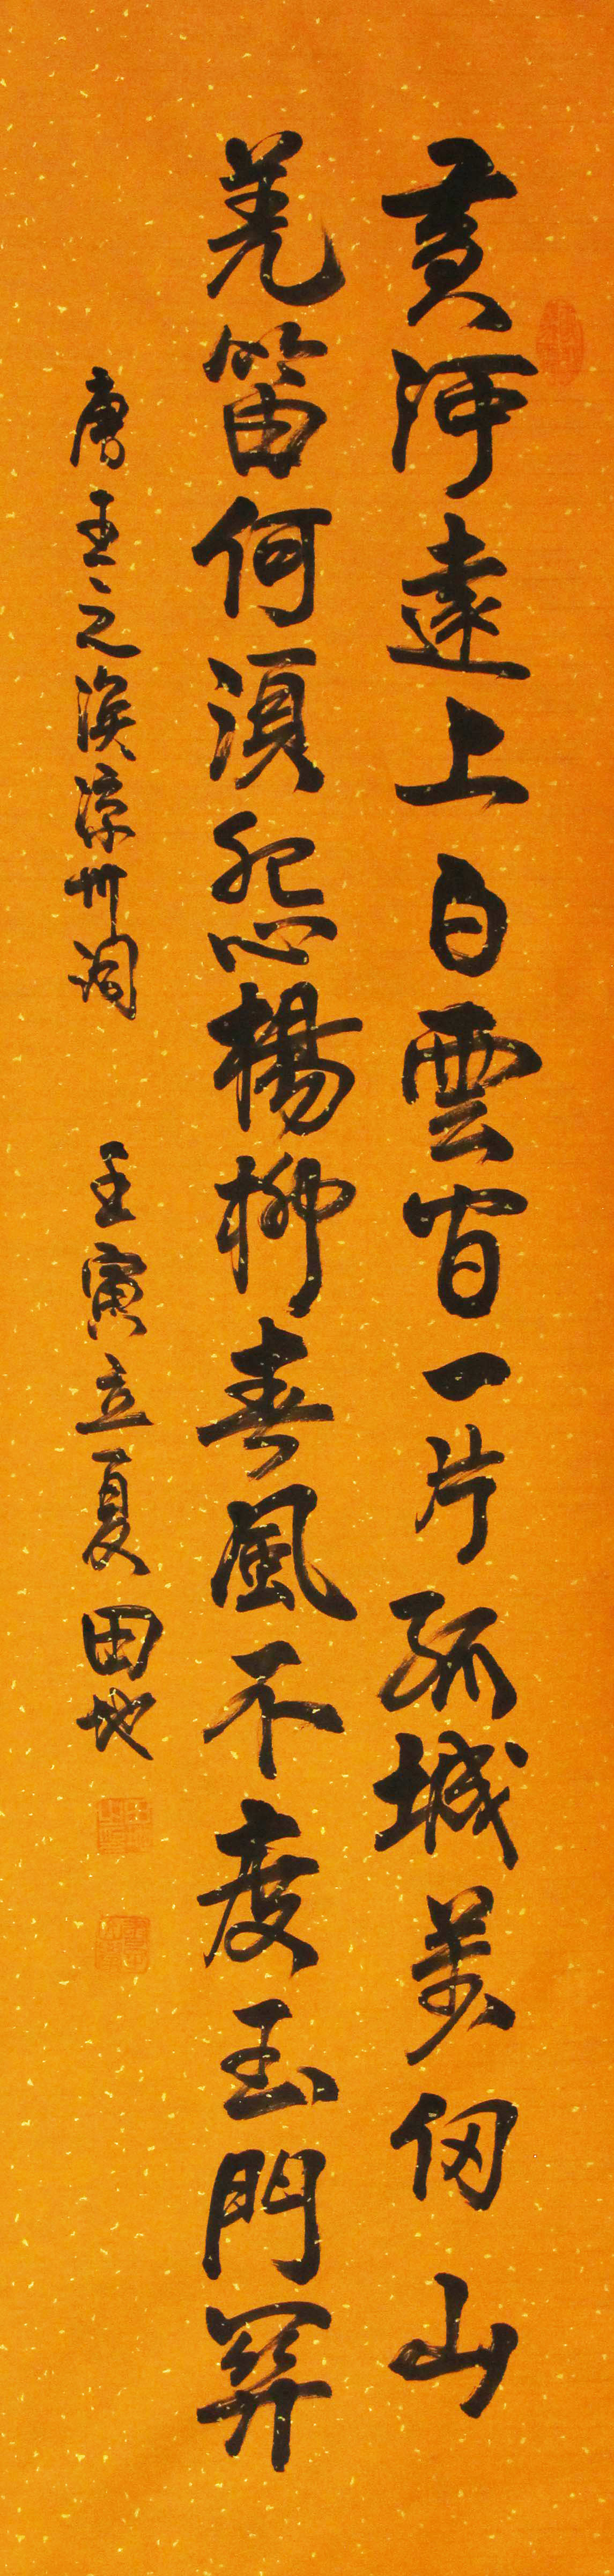 黄河遠上白雲間一片孤城萬仞山
羌笛何須怨楊柳春風不度玉門關
唐王之渙涼州詞 壬寅立夏田地